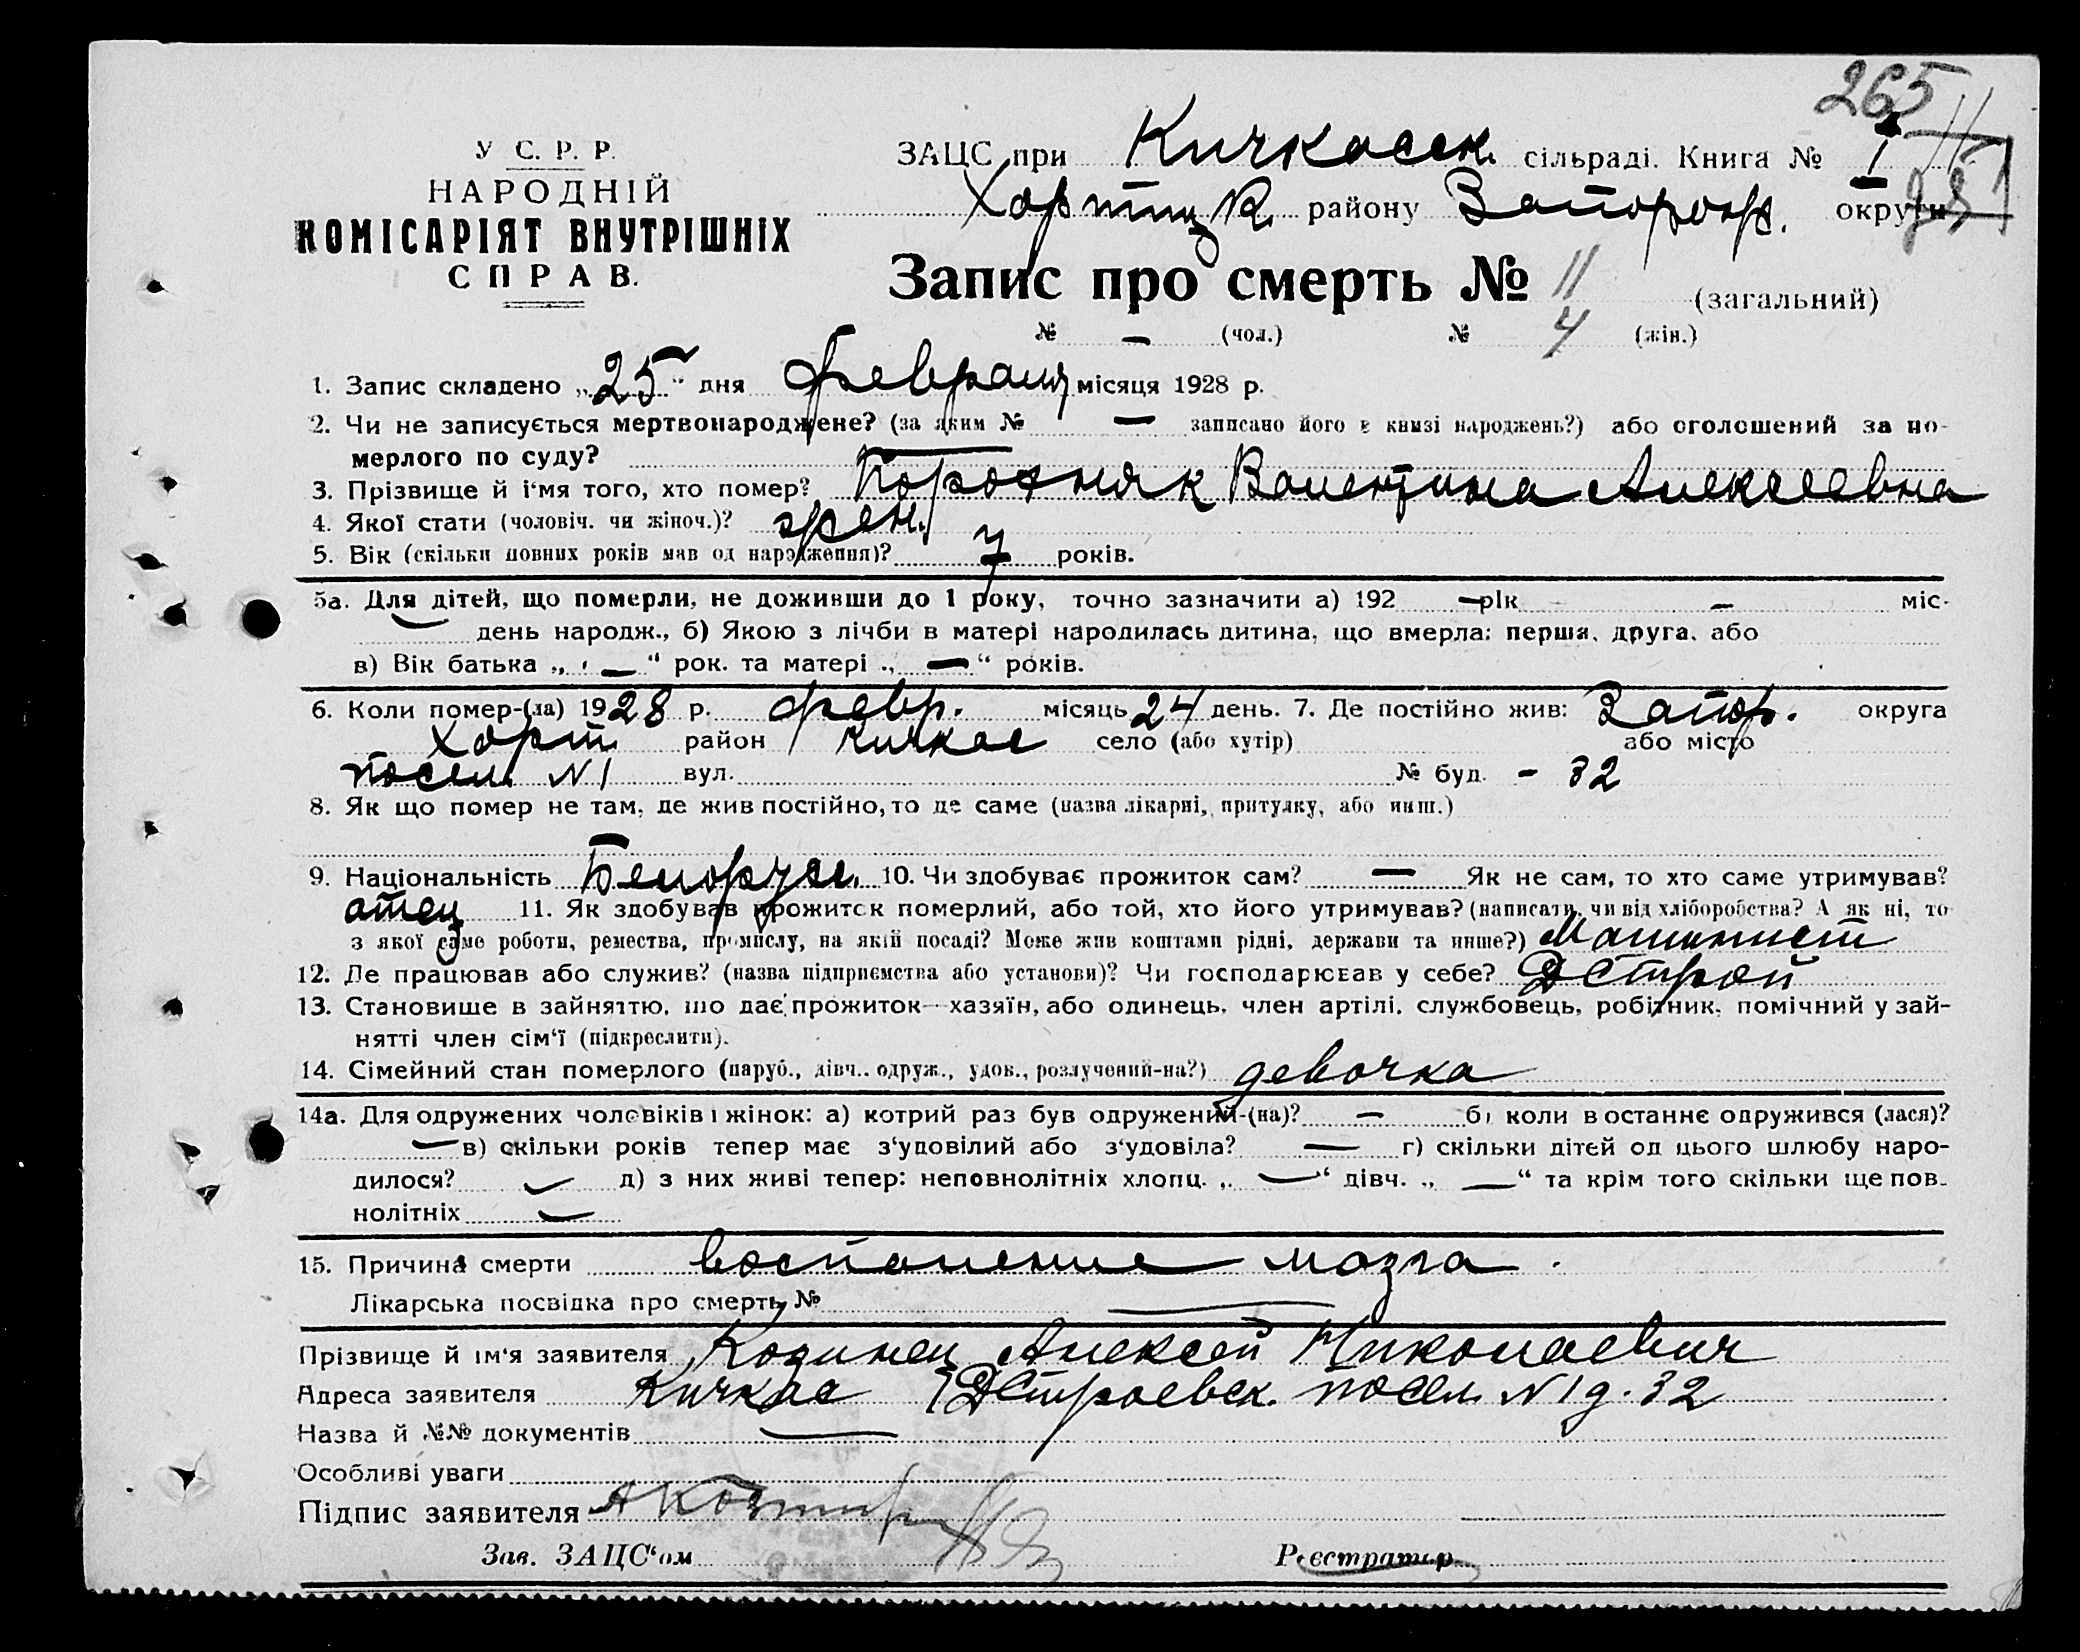 265
У С. Р. Р.
НАРОДНІЙ
КОМІСАРІЯТ ВНУТРІШНІХ
СПРАВ.
ЗАЦС при Кичкасск. сільраді. Книга № 1
Хортиц R. району Запорож. округи
Запис про смерть № 11 (загальний)
№ — (чол.) № 4 (жін.)
1. Запис складено „25“ дня февраля місяця 1928 р.
2. Чи не записується мертвонароджене? (за яким № — записано його в книзі народжень?) або оголошений за по-
мерлого по суду? —
3. Прізвище й і'мя того, хто помер? Порохняк Валентина Алексеевна
4. Якої стати (чоловіч. чи жіноч.)? жен.
5. Вік (скільки повних років мав од народження)? 7 років.
5а. Для дітей, що померли, не доживши до 1 року, точно зазначити а) 192 — рік — міс.
— день народж., б) Якою з лічби в матері народилась дитина, що вмерла: перша, друга, або
в) Вік батька „ — “ рок. та матері „ — “ років.
6. Коли помер-(ла) 1928 р. февр. місяць 24 день. 7. Де постійно жив: Запор. округа
Хорт. район Кичкас село (або хутір) або місто
посел. N 1 вул. № буд. - 32
8. Як що помер не там, де жив постійно, то де саме (назва лікарні, притулку, або инш.)
9. Національність Белорусс. 10. Чи здобуває прожиток сам? — Як не сам, то хто саме утримував?
отец 11. Як здобував прожиток померлий, або той, хто його утримував? (написати, чи від хліборобства? А як ні, то
з якої саме роботи, ремества, промислу, на якій посаді? Може жив коштами рідні, держави та инше?) Машинист
12. Де працював або служив? (назва підприємства або установи)? Чи господарював у себе? ДСтрой
13. Становище в зайняттю, що дає прожиток—хазяїн, або одинець, член артілі, службовець, робітник, помічний у зай-
нятті член сім'ї (підкреслити).
14. Сімейний стан померлого (паруб., дівч., одруж., удов., розлучений-на?) девочка
14а. Для одружених чоловіків і жінок: а) котрий раз був одружений-(на)? — б) коли в останнє одружився (лася)?
— в) скільки років тепер має з'удовілий або з'удовіла? — г) скільки дітей од цього шлюбу наро-
дилося? — д) з них живі тепер: неповнолітніх хлопц. „ — “ дівч. „ — “ та крім того скільки ще пов-
нолітніх —
15. Причина смерти воспаление мозга.
Лікарська посвідка про смерть № —
Прізвище й ім'я заявителя Алексей Николаевич
Адреса заявителя Кичкас ДСтроевск. посел. N 1 д. 32
Назва й №№ документів —
Особливі уваги
Підпис заявителя
Зав. ЗАЦС'ом Реєстратор